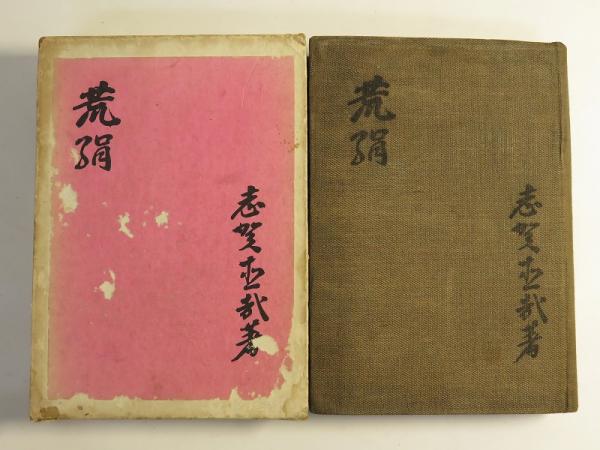 荒絹
志賀直哉著
荒絹
志賀直哉著